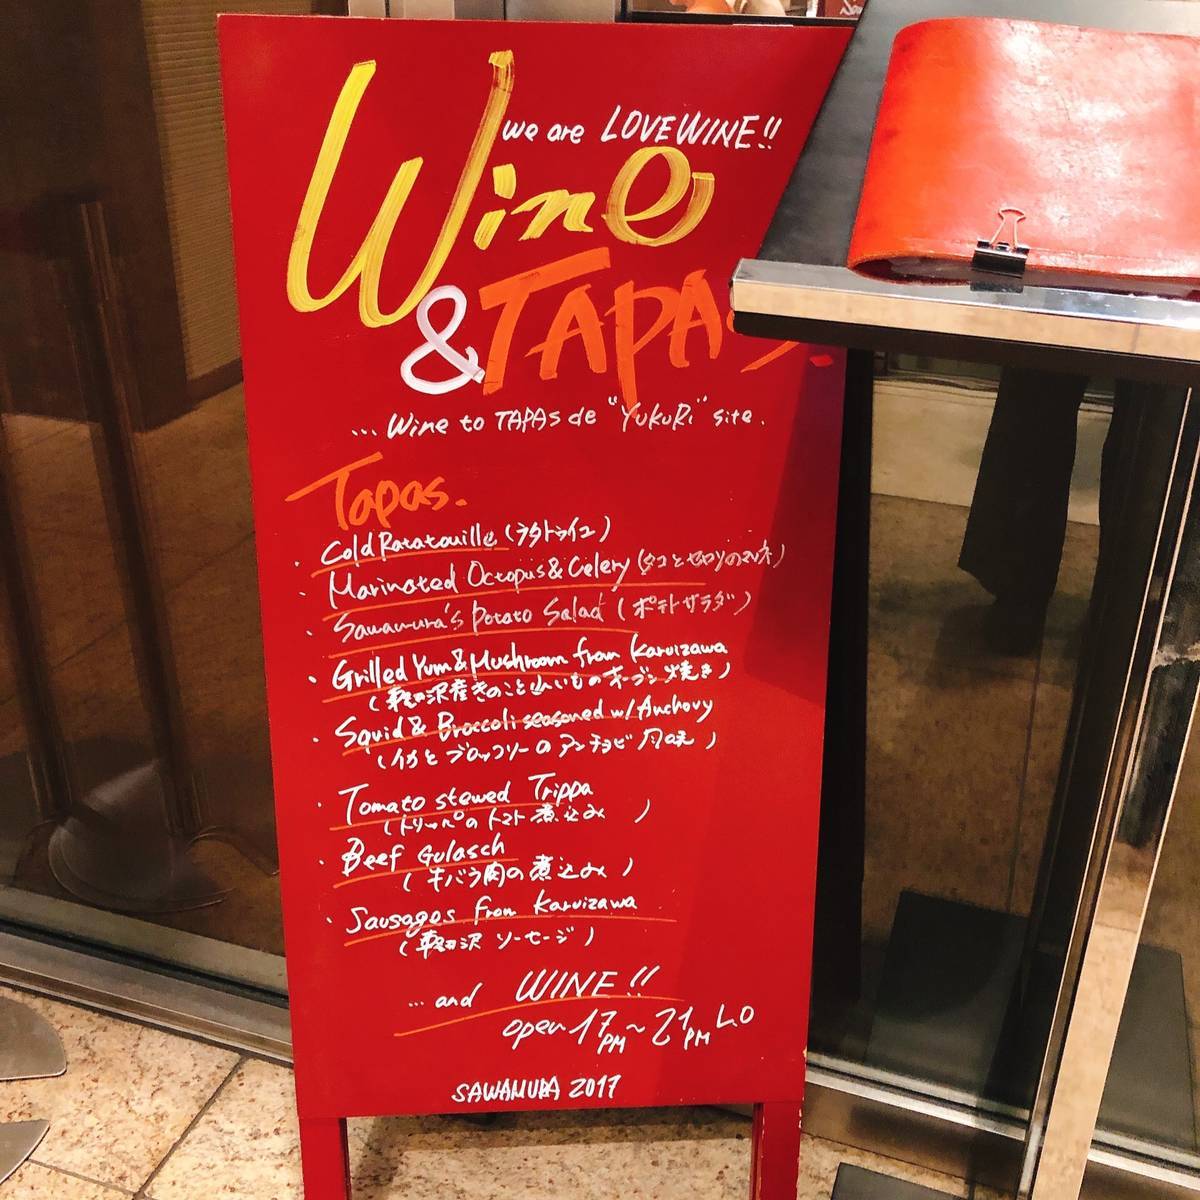 we are LOVE WINE!!
Wine
& TAPAS.
... Wine to TAPAS de "YUKURi" site.
Tapas.
・Cold Ratatouille (ラタトゥイユ)
・Marinated Octopus & Celery (タコとセロリのマリネ)
・Sawamura's Potato Salad (ポテトサラダ)
・Grilled Yum & Mushroom from Karuizawa
(軽井沢産きのこと山いものオーブン焼き)
・Squid & Broccoli seasoned w/ Anchovy
(イカとブロッコリーのアンチョビ風味)
・Tomato stewed Trippa
(トリッパのトマト煮込み)
・Beef Gulasch
(牛バラ肉の煮込み)
・Sausages from Karuizawa
(軽井沢 ソーセージ)
... and WINE!!
open 17PM~21PM L.O
SAWAMURA 2017